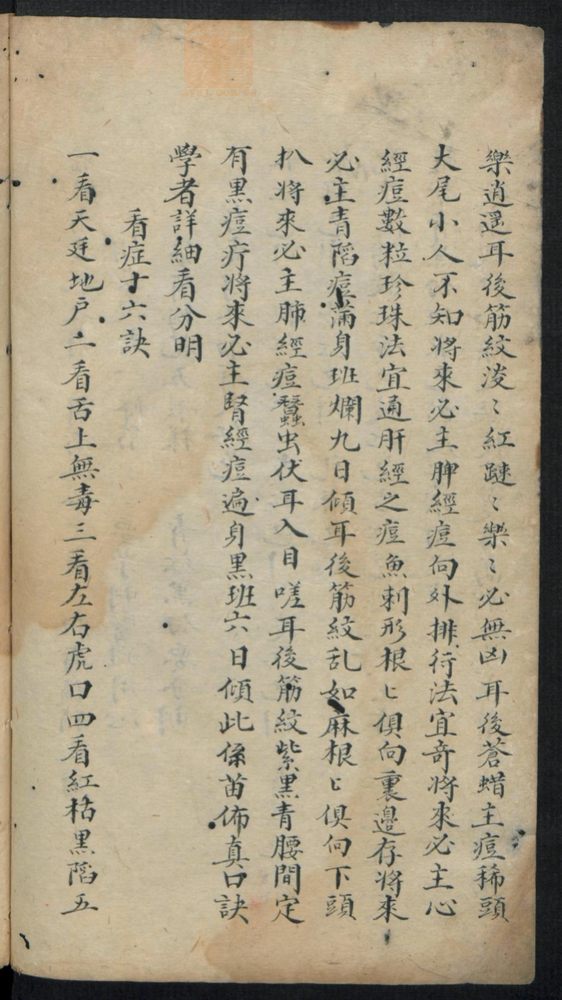 樂逍遥耳後筋紋淩〻紅踺〻樂〻必無凶耳後蒼蜡主痘稀頭
大尾小人不知將來必主脾經痘向外排行法宜奇將來必主心
經痘數粒珍珠法宜通肝經之痘魚刺形根匕俱向裏邊存將來
必主青陷痘滿身班爛九日傾耳後筋紋乱如麻根匕俱向下頭
扒將來必主肺經痘蠶虫伏耳入目嗟耳後筋紋紫黑青腰間定
有黑痘疔將來必主腎經痘遍身黑班六日傾此係苗佈真口訣
學者詳細看分明
看症十六訣
一看天廷地户二看舌上無毒三看左右虎口四看紅枯黑陷五